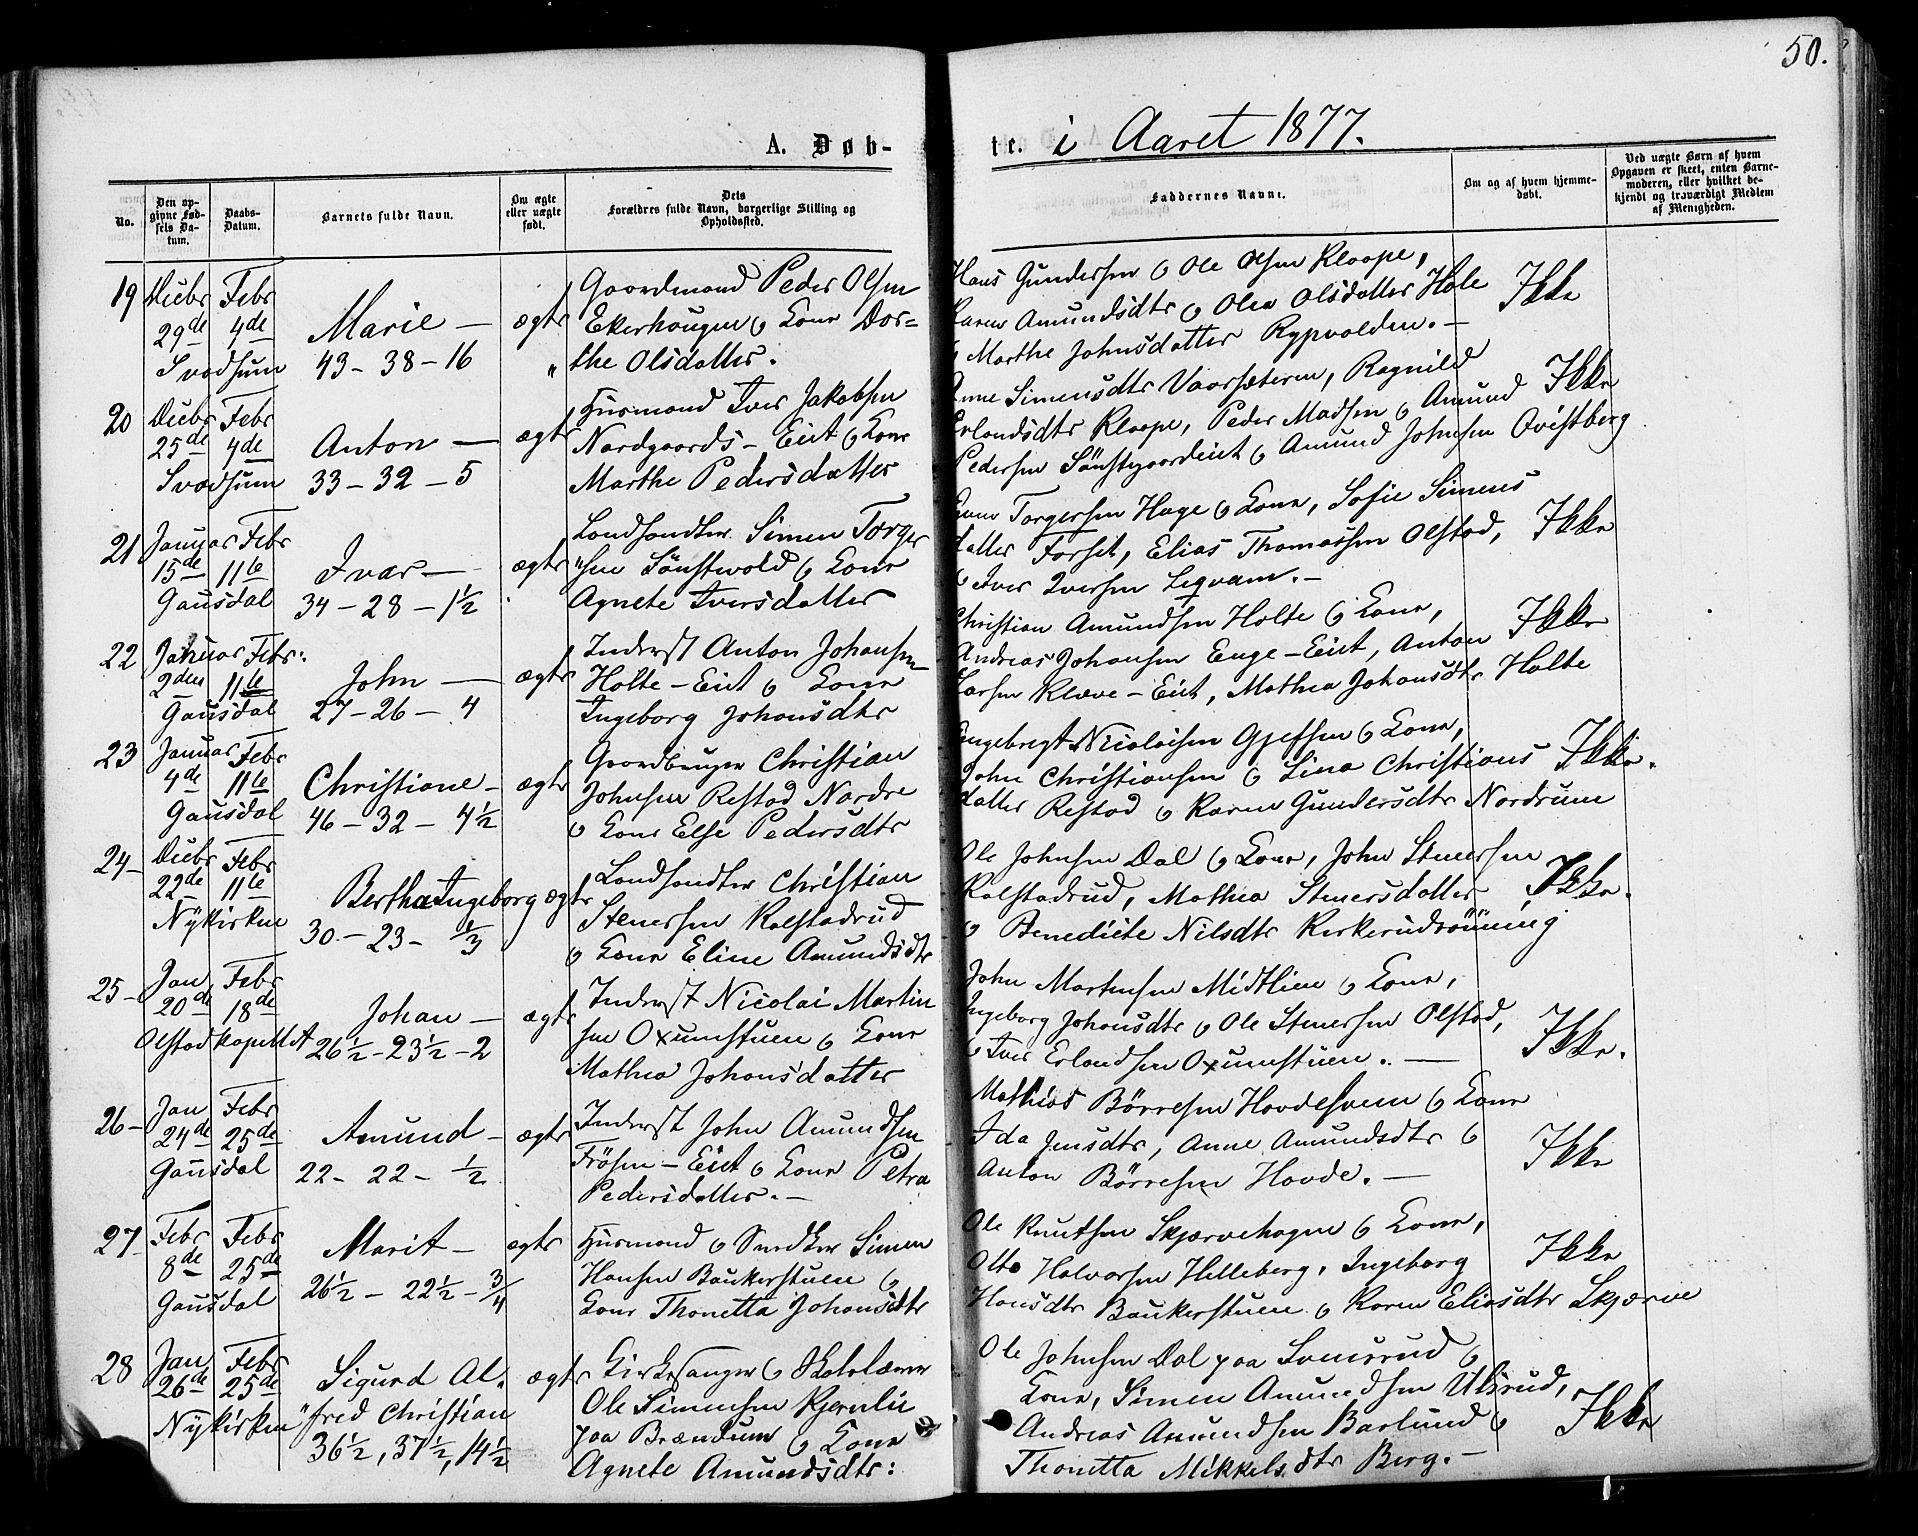 50.
A. Døb-
te. i Aaret 1877.
No.
Den op-
givne Fød-
sels Da-
tum.
Daabs-
Datum.
Barnets fulde Navn.
Om ægte
eller uægte
født.
Dets
Forældres fulde Navn, borgerlige Stilling og
Opholdssted.
Faddernes Navne.
Om og af hvem hjemme-
døbt.
Ved uægte Børn af hvem
Opgaven er skeet, enten Barne-
moderen, eller hvilket be-
kjendt og troværdigt Medlem
af Menigheden.
19
Decbr
29de
Svadsum
Febr
4de
Marie —
43 - 38 - 16
ægte
Gaardmand Peder Olsen
Ekerhougen og Kone Dor=
the Olsdatter.
Hans Gundersen og Ole Olsen Kloppe,
Karen Amundsdtr og Olea Olsdatter Hole
og Marthe Johnsdatter Rypvolden. —
Ikke
20
Decbr
25de
Svadsum
Febr
4de
Anton —
33 - 32 - 5
ægte
Husmand Iver Jakobsen
Nordgaards-Eiet og Kone
Marthe Pedersdatter
Anne Simensdtr Vaarsæteren, Ragnild
Erlandsdtr Kloppe, Peder Madsen og Amund
Pedersen Sönstegaardeiet og Amund Johnsen Qvistberg
Ikke
21
Januar
15de
Gausdal
Febr
11te
Ivar —
34 - 28 - 1½
ægte
Landhandler Simen Torger
"sen Sönstvold og Kone
Agnete Iversdatter
Torgersen Hage og Kone, Sofie Simens
datter Forset, Elias Thomassen Olstad,
og Iver Iversen Legvam. —
Ikke
22
Januar
2den
Gausdal
Febr:
11te
John —
27 - 26 - 4
ægte
Inderst Anton Johansen
Holte-Eiet og Kone
Ingeborg Johansdtr
Christian Amundsen Holte og Kone,
Andreas Johansen Enge-Eiet, Anton
Larsen Kleve-Eiet, Mathea Johansdtr Holte
Ikke
23
Januar
4de
Gausdal
Febr
11te
Christiane —
46 - 32 - 4½
ægte
Gaardbruger Christian
Johnsen Restad Nordre
og Kone Else Pedersdtr
Engebregt Nicolaisen Gjefsen og Kone,
John Christiansen og Lina Christians
datter Restad og Karen Gundersdtr Nordrum
Ikke.
24
Decbr
22de
Nykirken
Febr
11te
Bertha Ingeborg
30 - 23 - ⅓
ægte
Landhandler Christian
Stenersen Kalstadrud
og Kone Eline Amundsdtr
Ole Johnsen Dal og Kone, John Stenersen
Kalstadrud, Mathea Stenersdatter
og Benedicte Nilsdtr Kirkerudrönning
Ikke.
25
Jan
20de
Olstadkapellet
Febr
18de
Johan —
26½ - 23½ - 2
ægte
Inderst Nicolai Martin
sen Oxumstuen og Kone
Mathea Johansdatter
John Martinsen Midtlien og Kone,
Ingeborg Johansdtr og Ole Stenersen Olstad,
og Iver Erlandsen Oxumstuen. —
Ikke.
26
Jan
24de
Gausdal
Febr
25de
Amund —
22 - 22 - ½
ægte
Inderst John Amundsen
Frösen-Eiet og Kone Petra
Pedersdatter. —
Mathias Börresen Hovdesveen og Kone
Ida Jensdtr, Anne Amundsdtr og
Anton Börresen Hovde. —
Ikke
27
Febr
8de
Gausdal
Febr
25de
Marit —
26½ - 22½ - ¾
ægte
Husmand og Snedker Simen
Hansen Baukerstuen og
Kone Thonetta Johansdtr
Ole Knutsen Skjærvehagen og Kone,
Otto Halvorsen Helleberg, Ingeborg
Hansdtr Baukerstuen og Karen Eliasdtr Skjærve
Ikke
28
Jan
26de
Nykirken
Febr
25de
Sigurd Al-
"fred Christian
36½, 37½, 14½
ægte
Kirkesanger og Skolelærer
Ole Simensen Kjernlie
paa Brændum og Kone
Agnete Amundsdtr:
Ole Johnsen Dal paa Svensrud og
Kone, Simen Amundsen Ulsrud,
Andreas Amundsen Barlund og
Thonetta Mikkelsdtr Berg. —
Ikke